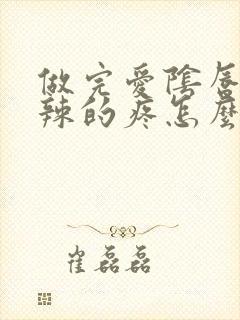 做完爱陰唇
辣的疼怎麼
崔磊磊